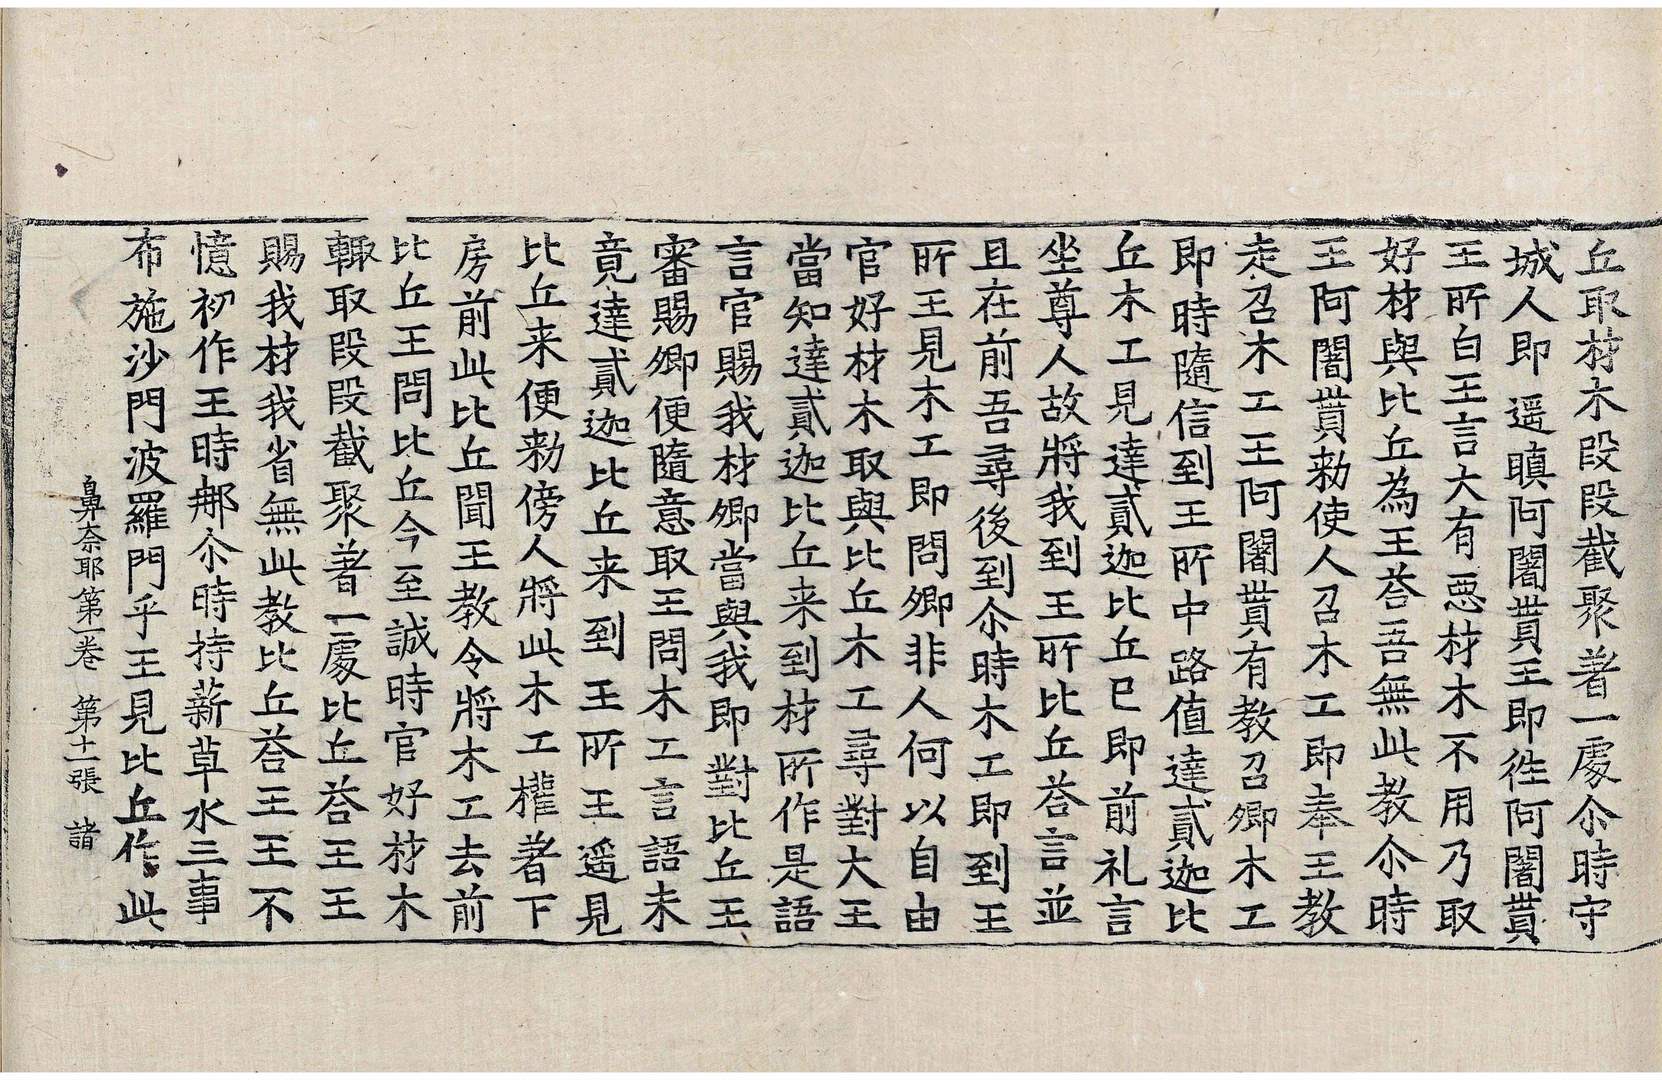 丘取材木段段截聚著一處尒時守
城人即遥瞋阿闍貰王即徃阿闍貰
王所白王言大有惡材木不用乃取
好材與比丘為王荅吾無此教尒時
王阿闍貰勑使人召木工即奉王教
走召木工王阿闍貰有教召卿木工
即時隨信到王所中路值達貳迦比
丘木工見達貳迦比丘巳即前礼言
坐尊人故將我到王所比丘荅言並
且在前吾尋後到尒時木工即到王
所王見木工即問卿非人何以自由
官好材木取與比丘木工尋對大王
當知達貳迦比丘来到材所作是語
言官賜我材卿當與我即對比丘王
審賜卿便隨意取王問木工言語未
竟達貳迦比丘来到王所王遥見
比丘来便勑傍人將此木工權著下
房前此比丘聞王教令將木工去前
比丘王問比丘今至誠時官好材木
輙取段段截聚著一處比丘荅王王
賜我材我省無此教比丘荅王王不
憶初作王時耶尒時持薪草水三事
布施沙門波羅門乎王見比丘作此
鼻奈耶第一卷 第十一張 諸